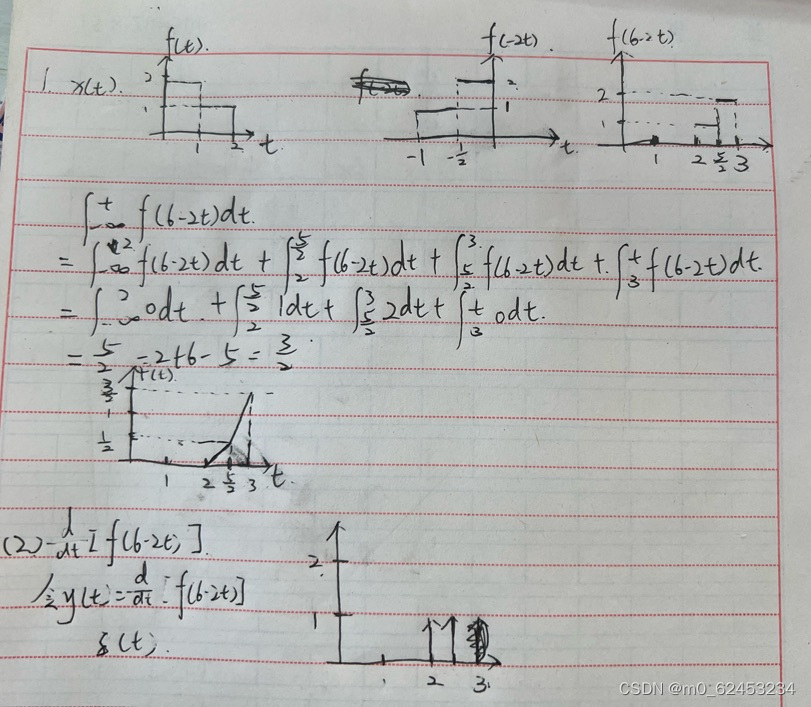 f(t). f(-2t). f(6-2t)
1. x(t). 2 1 1 2 t. -1 -1/2 2 1 t. 2 1 1 2 5/2 3
∫_{-∞}^{t} f(6-2t)dt.
= ∫_{-∞}^{2} f(6-2t)dt + ∫_{2}^{5/2} f(6-2t)dt + ∫_{5/2}^{3} f(6-2t)dt + ∫_{3}^{t} f(6-2t)dt.
= ∫_{-∞}^{2} 0dt + ∫_{2}^{5/2} 1dt + ∫_{5/2}^{3} 2dt + ∫_{3}^{t} 0dt.
= 5/2 -2+6-5 = 3/2
f(t)
3/2
1
1/2
1 2 5/2 3 t.
(2) d/dt [f(6-2t)]
2
y(t)=d/dt[f(6-2t)]
1
δ(t).
1 2 3
CSDN @m0_62453234